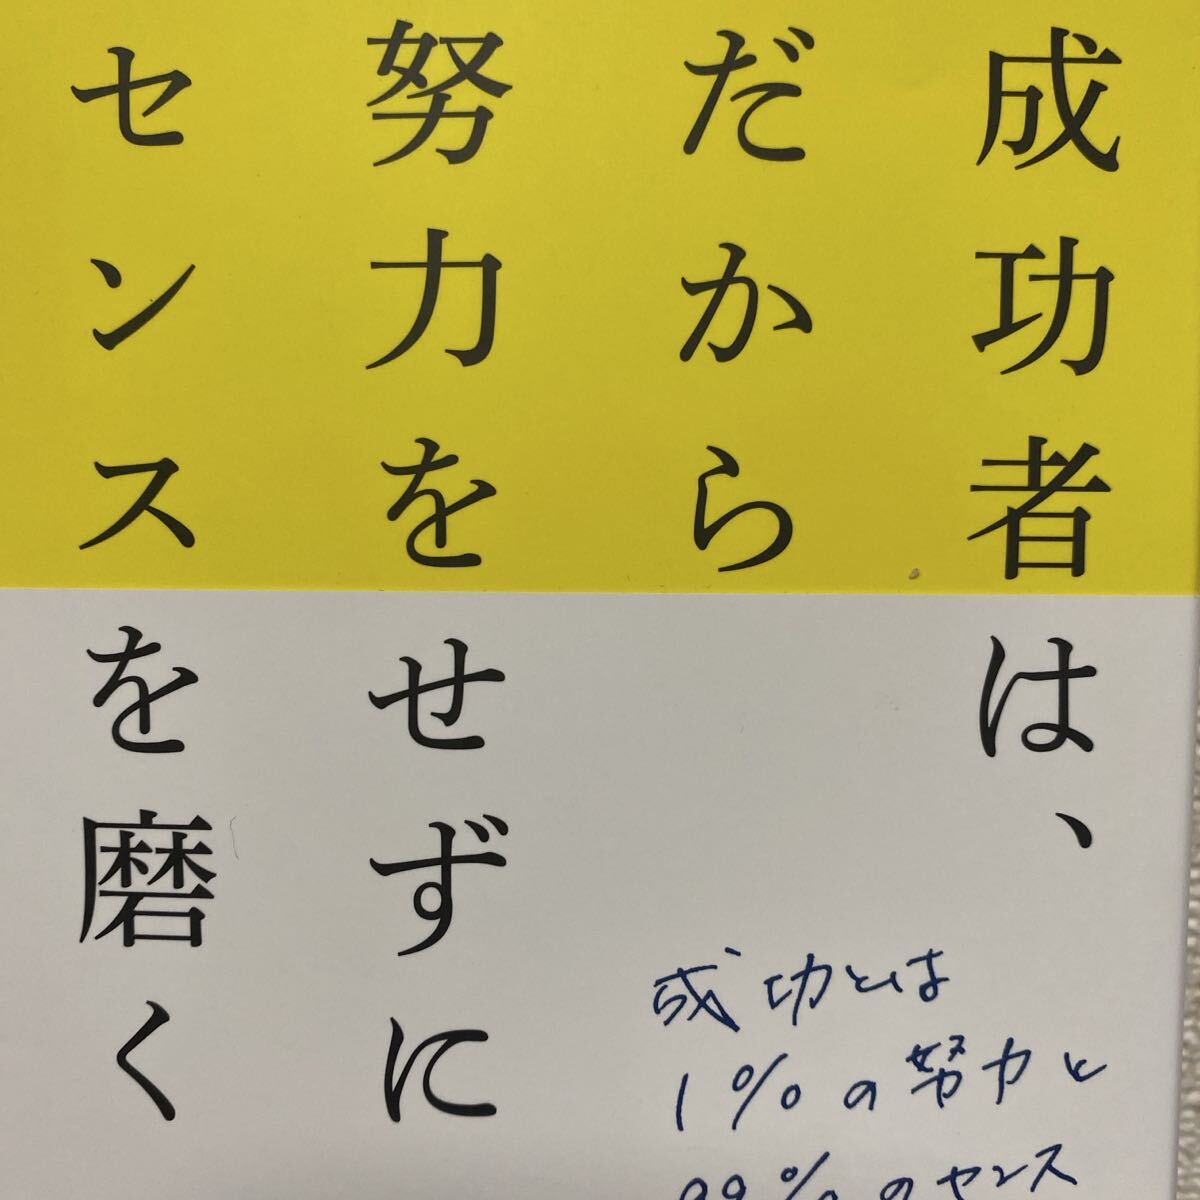 成功者は、
だから
努力をせずに
センスを磨く
成功とは
1%の努力と
99%のセンス